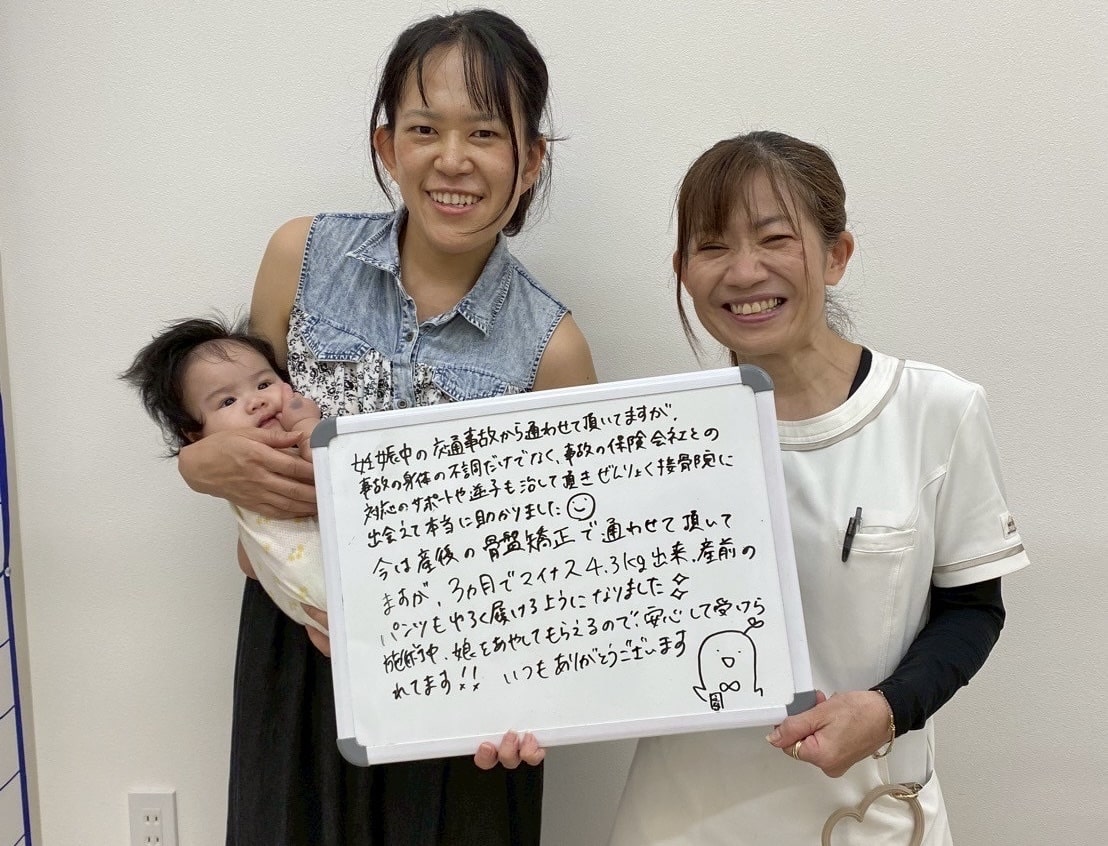 妊娠中の交通事故から通わせて頂いてますが、
事故の身体の不調だけでなく、事故の保険会社との
対応のサポートや逆子も治して頂きぜんりょく接骨院に
出会えて本当に助かりました
今は産後の骨盤矯正で通わせて頂いて
ますが、3ヵ月でマイナス4.3kg出来、産前の
パンツもゆるく履けるようになりました
施術中、娘をあやしてもらえるので、安心して受けら
れてます!! いつもありがとうございます